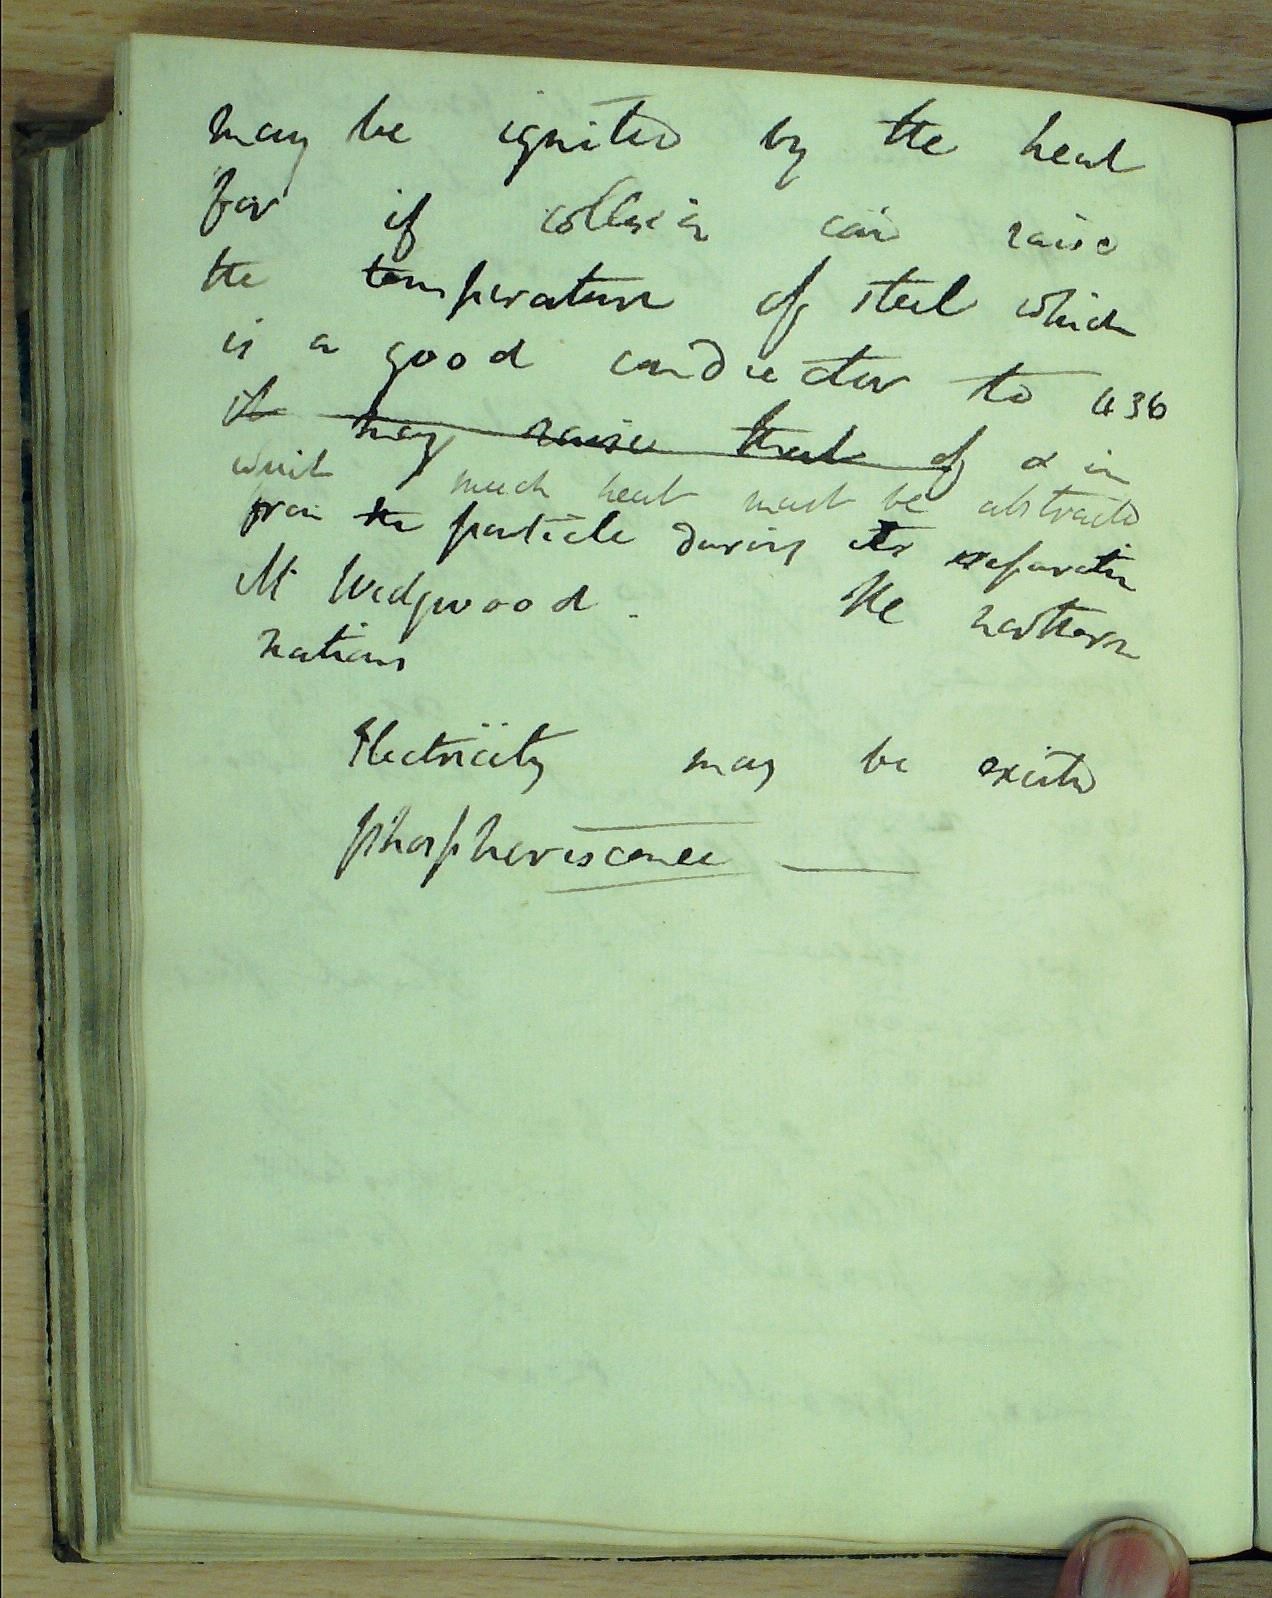 may be ignited by the heat
for if collision can raise
the temperature of steel which
is a good conductor to 436
it may raise that of & in
which much heat must be abstracted
from the particle during its separation
Mr Wedgwood. The northern
nations
Electricity may be excited
phosphoriscence —